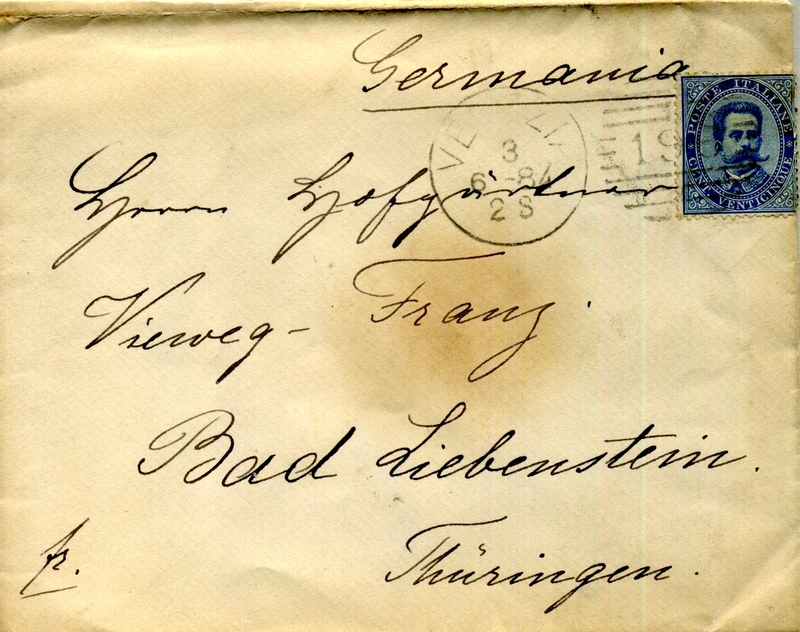 Germania
POSTE ITALIANE
CENT. VENTICINQUE
3
6-84
2 S
19
Herrn Hofgärtner
Vieweg-Franz.
Bad Liebenstein.
fr.
Thüringen.